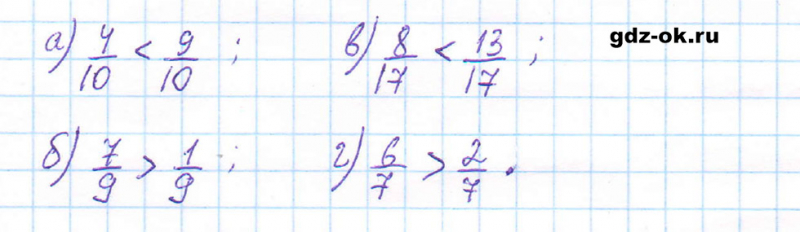 а) 4/10 < 9/10 ; в) 8/17 < 13/17 ;
gdz-ok.ru
б) 7/9 > 1/9 ; г) 6/7 > 2/7 .